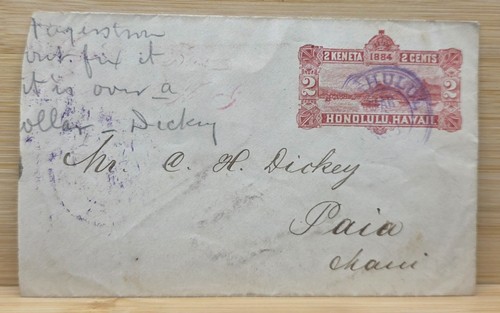 Hagerstrom
but fix it
it is over a
dollar Dickey
2 KENETA 1884 2 CENTS
2 2
HONOLULU, HAWAII.
HOLUL
Mr. C. H. Dickey
Paia
Maui